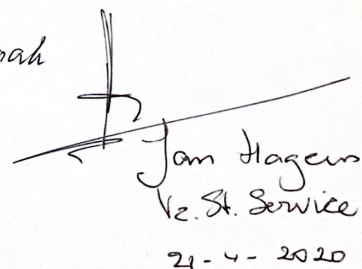 Jan Hagens
Vz. St. Service
21-4-2020